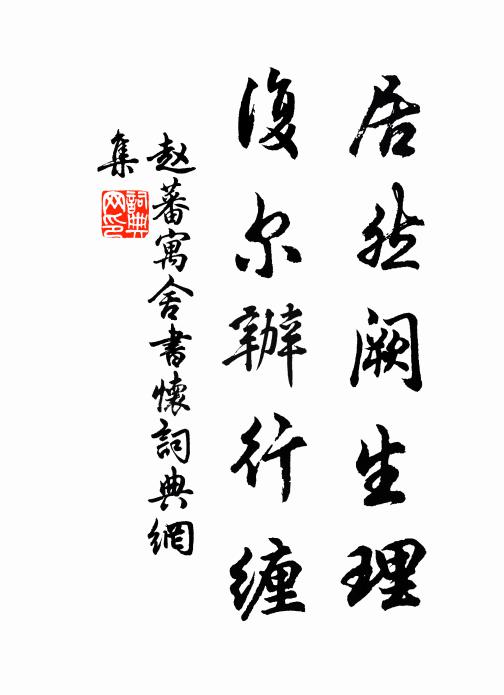 居然阙生理
復尔辦行缠
赵蕃寓舍書懷詞典網
集
詞典
网印